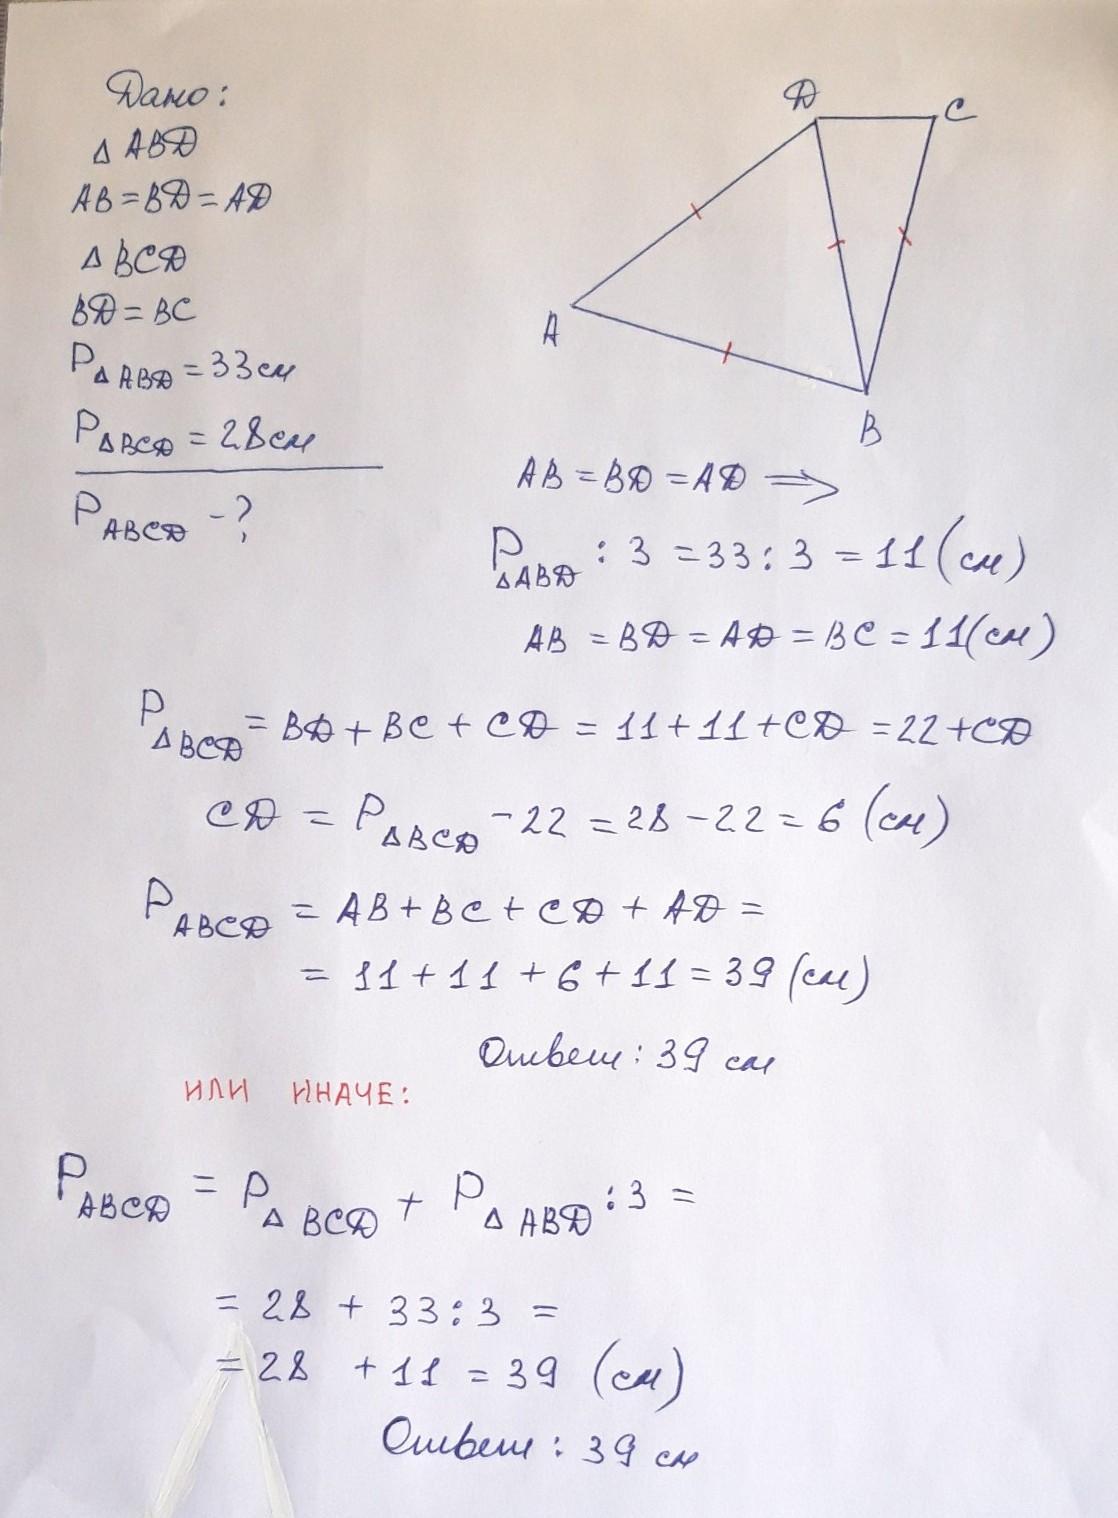 Дано:
Δ ABD
AB = BD = AD
Δ BCD
BD = BC
PΔABD = 33 см
PΔBCD = 28 см
PABCD - ?
D
C
A
B
AB = BD = AD ⟹
PΔABD : 3 = 33 : 3 = 11 (см)
AB = BD = AD = BC = 11 (см)
PΔBCD = BD + BC + CD = 11 + 11 + CD = 22 + CD
CD = PΔBCD - 22 = 28 - 22 = 6 (см)
PABCD = AB + BC + CD + AD =
= 11 + 11 + 6 + 11 = 39 (см)
Ответ: 39 см
ИЛИ ИНАЧЕ:
PABCD = PΔBCD + PΔABD : 3 =
= 28 + 33 : 3 =
= 28 + 11 = 39 (см)
Ответ: 39 см